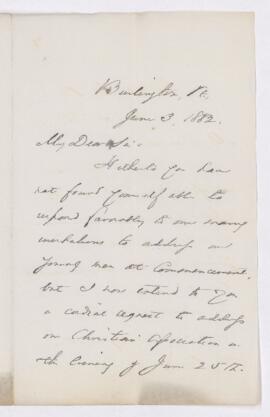 Burlington, Vt.
June 3, 1882.
My Dear Sir:
Hitherto you have
not found yourself able to
respond favorably to our many
invitations to address our
young men at Commencement,
but I now extend to you
a cordial request to address
our Christian Association on
the evening of June 25th.